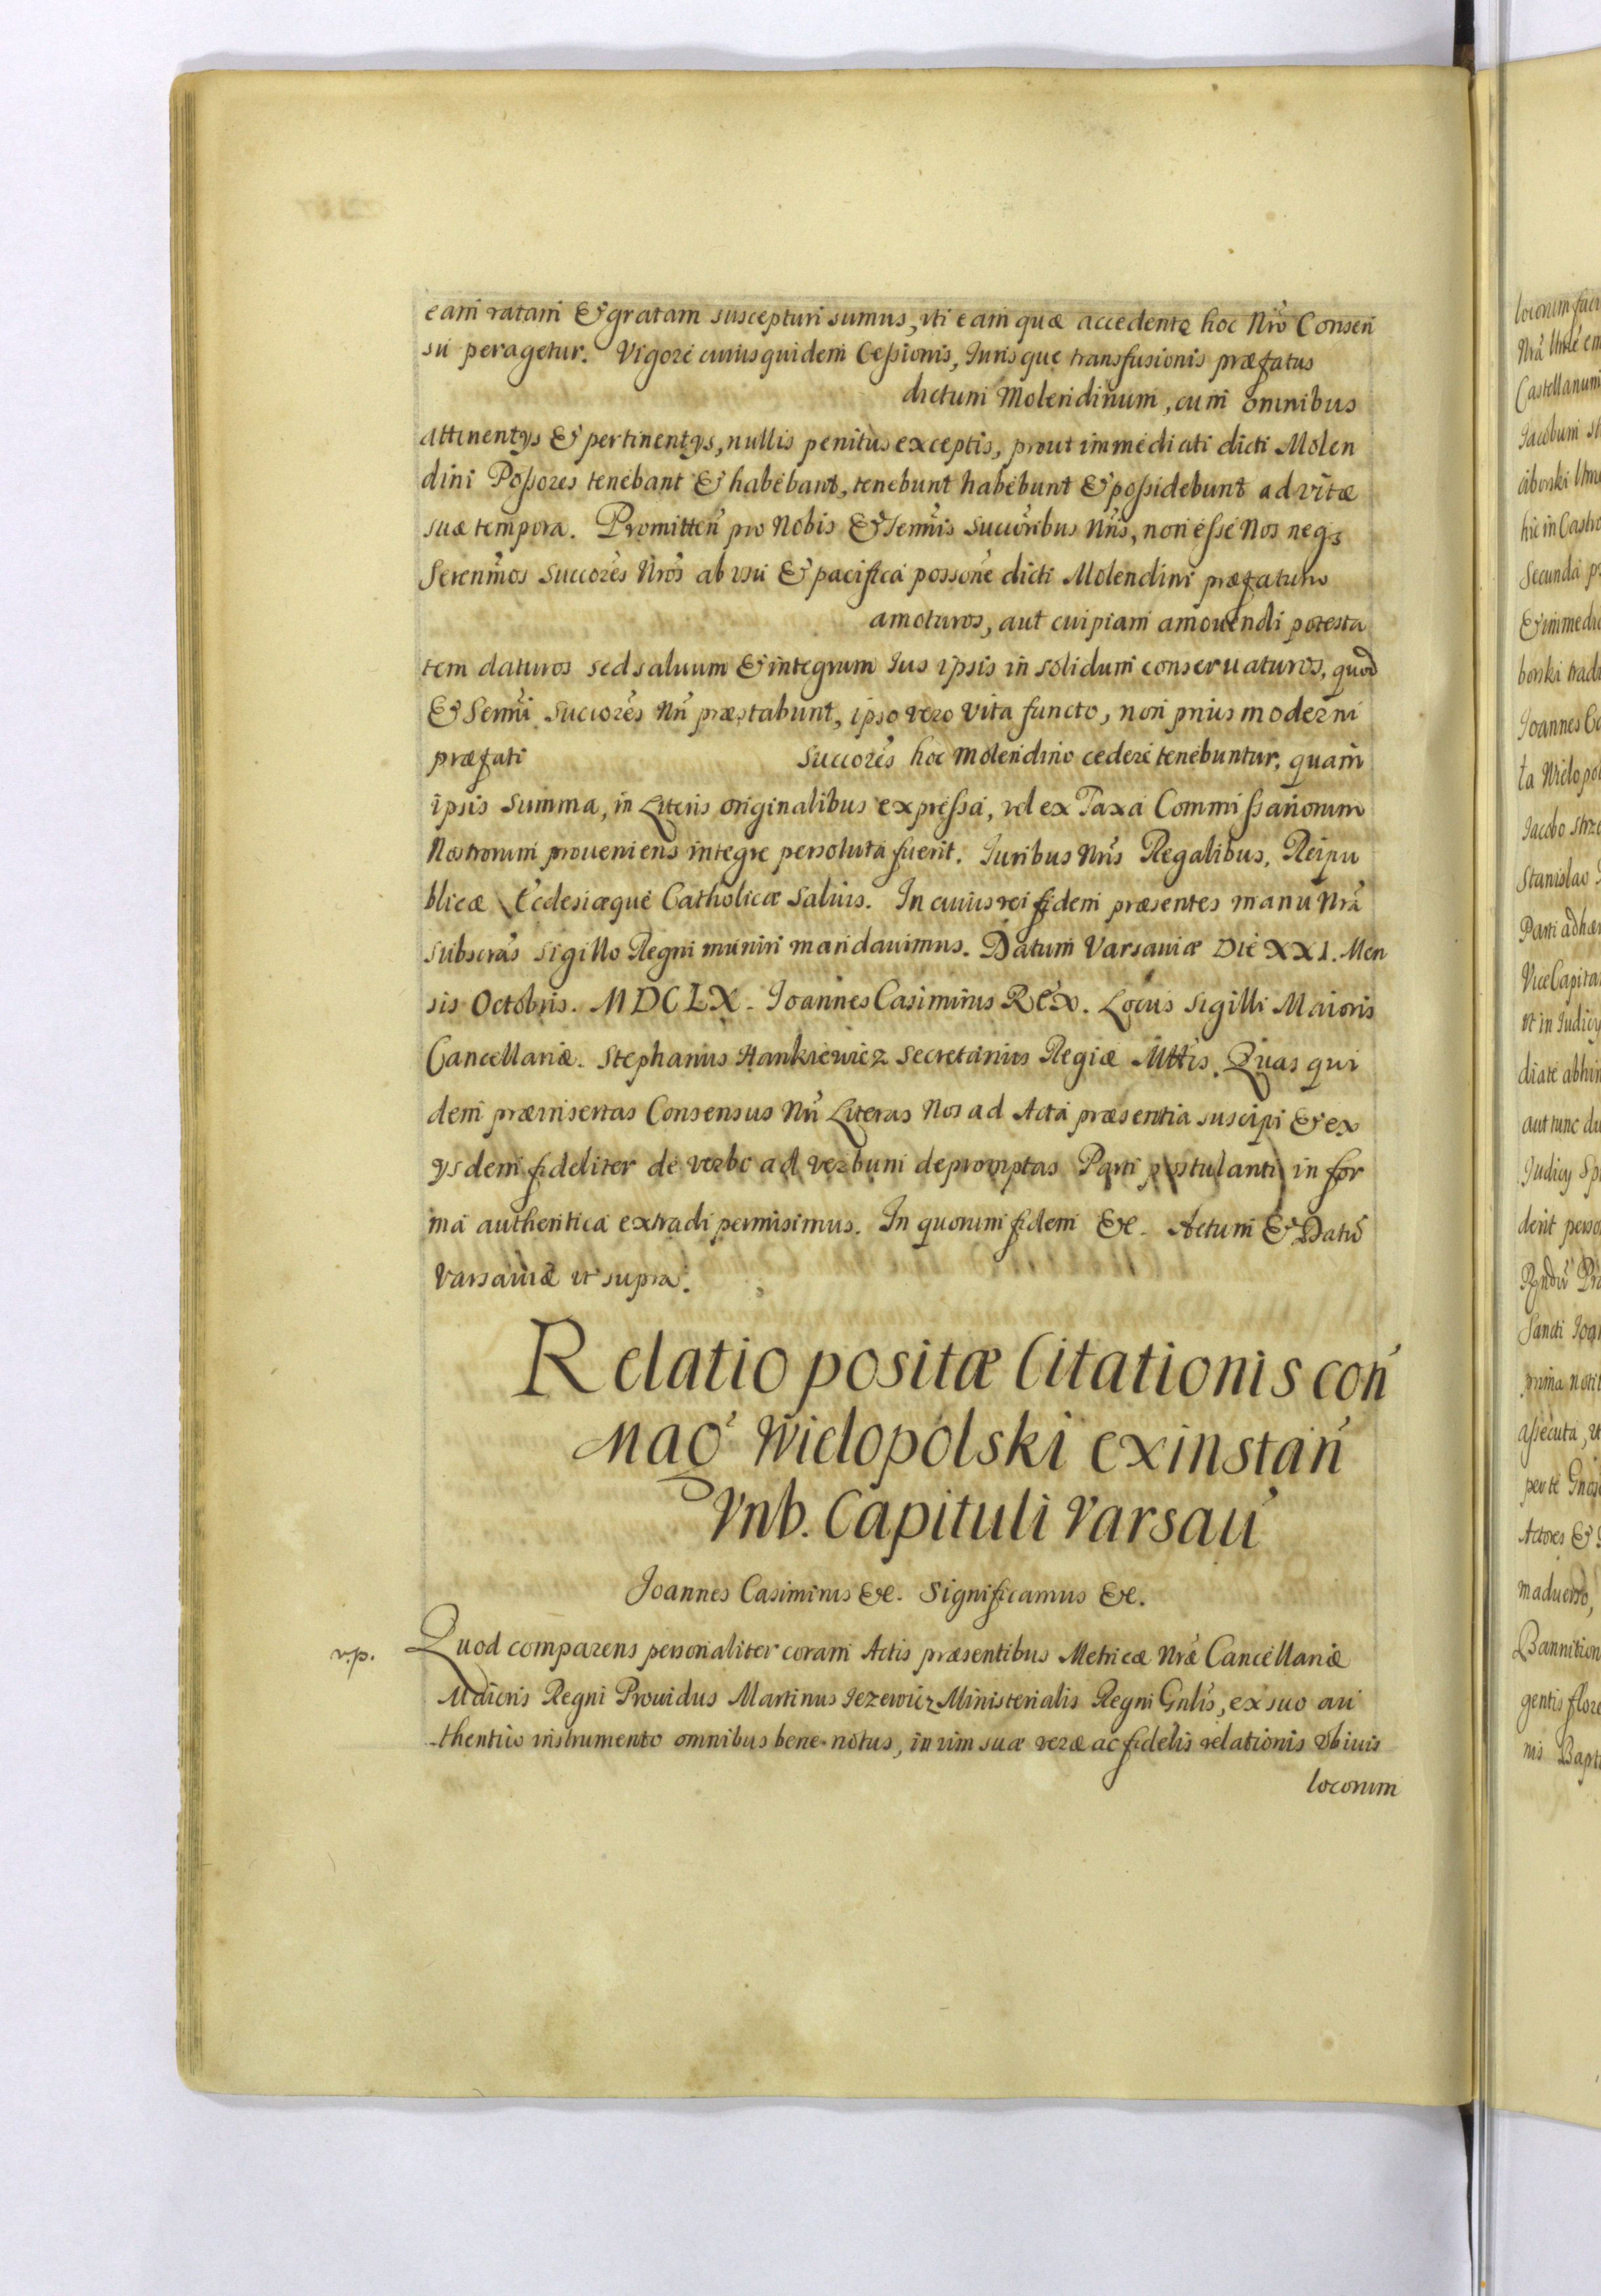 eam ratam & gratam suscepturi sumus, uti eam quæ accedente hoc Nrõ Consen
su peragetur. Vigore cuius quidem Cessionis, Iurisque transfusionis præfatus
dictum Molendinum, cum omnibus
attinentys & pertinentys, nullis penitus exceptis, prout immediati dicti Molen
dini Possores tenebant & habebant, tenebunt habebunt & possidebunt ad vitæ
suæ tempora. Promitten̄ pro Nobis & Serm̃is Succoribus Nr̃is, non esse Nos neqз
Serenm̃os Succorẽs Nrõs ab usu & pacifica possonẽ dicti Molendini præfatum
amoturos, aut cuipiam amouendi potesta
tem daturos sed saluum & integrum Ius ipsis in solidum conseruaturos, quod
& Serm̃i Succorẽs Nr̃i præstabunt, ipso vero vita functo, non prius moderni
præfati Succorẽs hoc Molendino cedere tenebuntur, quam
ipsis Summa, in Literis originalibus expressa, vel ex Taxa Commissariorum
Nostrorum proueniens integre persoluta fuerit. Iuribus Nr̃is Regalibus, Reipu
blicæ Ecclesiæque Catholicæ saluis. In cuius rei fidem præsentes manu Nrã
subscrãs sigillo Regni muniri mandauimus. Datum Varsauiæ Die XXI. Men
sis Octobris. MDCLX. Ioannes Casimirus Rex. Locus Sigilli Maioris
Cancellariæ. Stephanus Hankiewicz Secretarius Regiæ Mttis. Quas qui
dem præinsertas Consensus Nr̃i Literas Nos ad Acta præsentia suscipi & ex
ysdem fideliter de verbo ad verbum depromptas Parti postulanti in for
ma authentica extradi permisimus. In quorum fidem &c. Actum & Datũ
Varsauiæ ut supra.
Relatio positæ Citationis con̄
Mag: Wielopolski ex instan̄
Vnb. Capituli Varsau̅
Ioannes Casimirus &c. Significamus &c.
r.p.
Quod comparens personaliter coram Actis præsentibus Metricæ Nrǣ Cancellariæ
Maioris Regni Prouidus Martinus Iezewicz Ministerialis Regni Gnlĩs, ex suo au
thentico instrumento omnibus bene notus, in vim suæ veræ ac fidelis relationis ubiuis
locorum